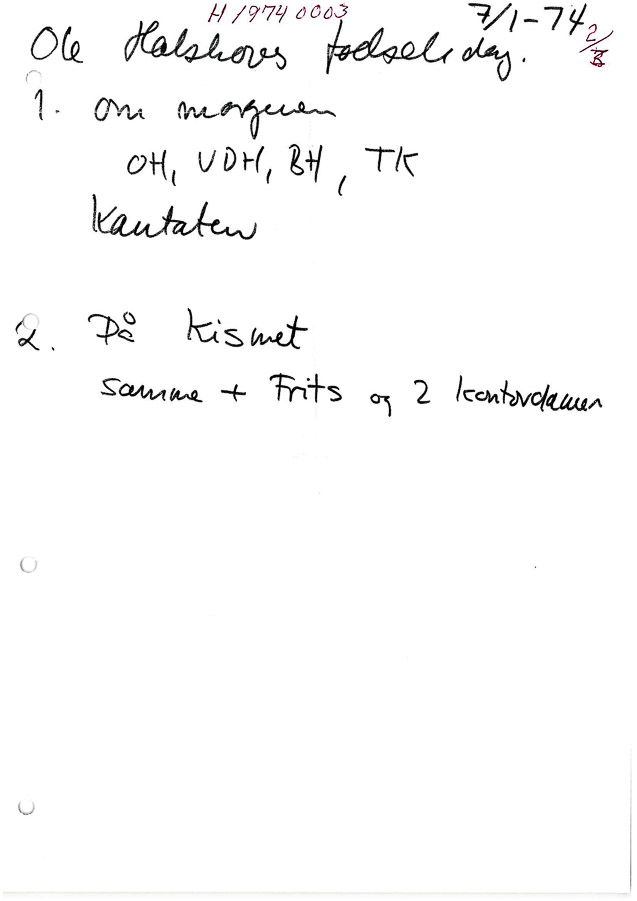 H 1974 0003
7/1-74
2/B
Ole Halskovs fødselsdag.
1. om morgenen
OH, VDH, BH, TK
Kantaten
2. På Kismet
samme + Frits og 2 kontordamer